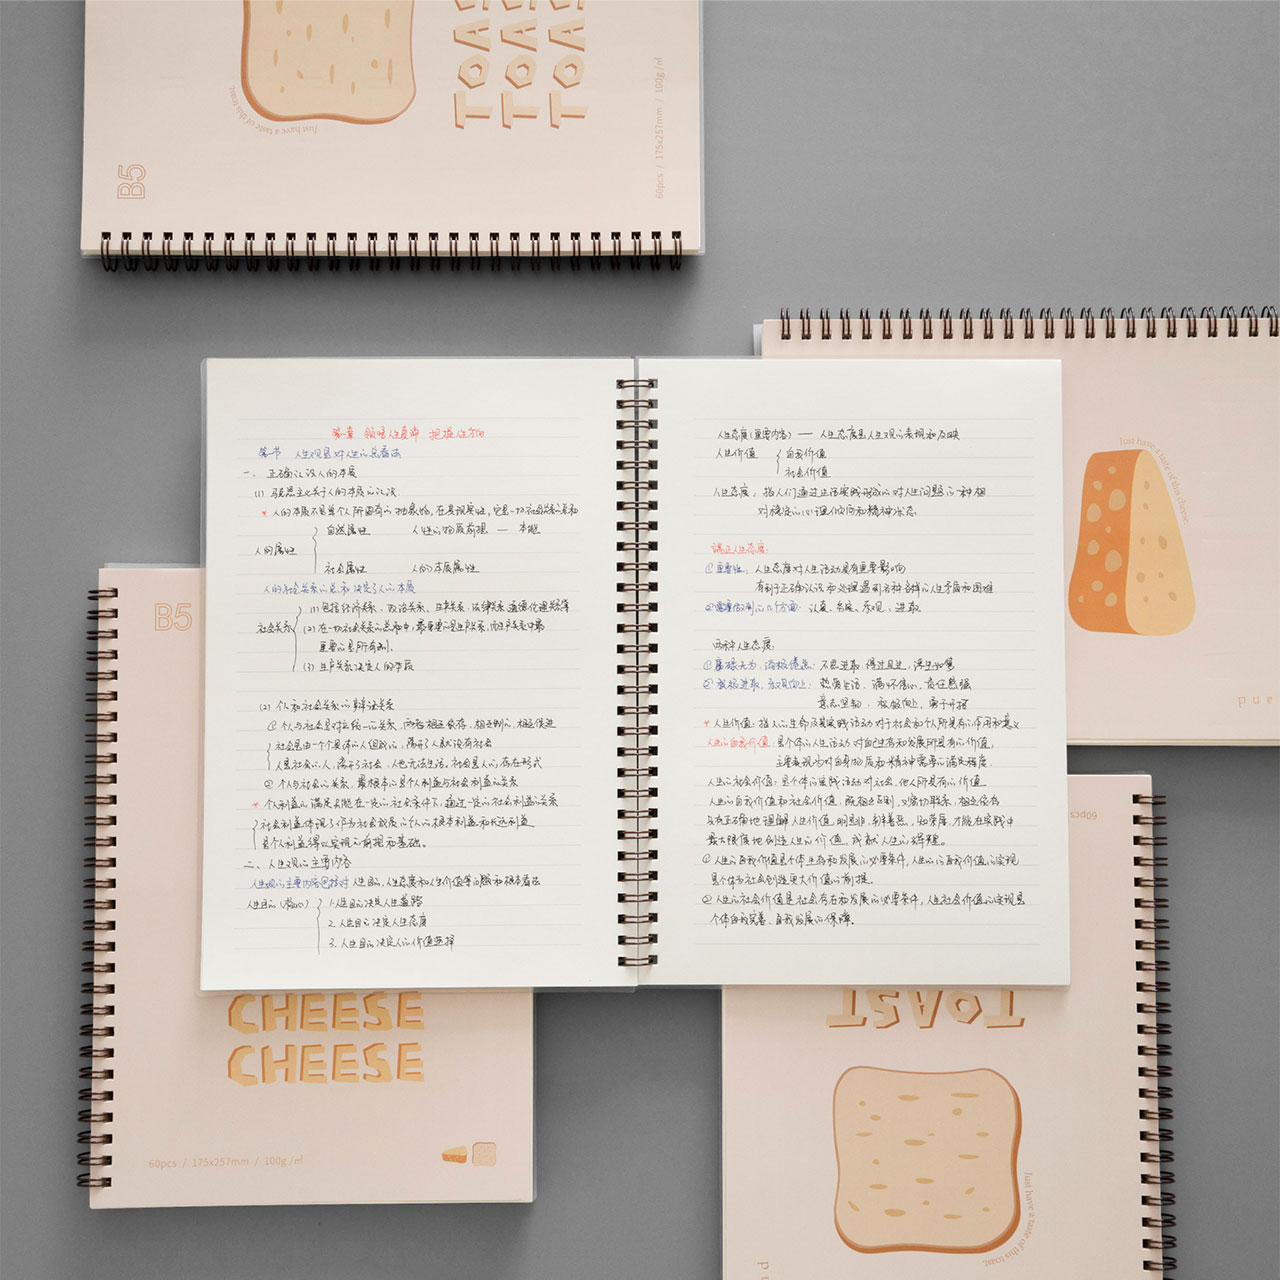 TOAST
TOAST
TOAST
Just have a taste of this toast.
B5
60pcs / 175x257mm / 100g/㎡
第一章 领悟人生真谛 把握人生方向
第一节 人生观是对人生的总看法
一、正确认识人的本质
(1) 马克思主义关于人的本质的认识
* 人的本质不是单个人所固有的抽象物,在其现实性,它是一切社会关系的总和
自然属性 人性的物质前提 — 本能
人的属性
社会属性 人的本质属性
人的社会关系的总和决定了人的本质
(1) 包括经济关系、政治关系、法律关系 道德伦理关系等
社会关系 (2) 在一切社会关系的总和中,最重要的是生产关系,而生产关系中最
重要的是所有制。
(3) 生产关系决定人的本质
(2) 个人和社会关系的辩证关系
① 个人与社会是对立统一的关系,两者相互依存、相互制约、相互促进
社会是由一个个具体的人组成的,离开了人就没有社会
人是社会的人,离开了社会,人也无法生活,社会是人的存在形式
② 个人与社会的关系,最根本的是个人利益与社会利益的关系
* 个人利益的满足只能在一定的社会条件下,通过一定的社会利益的关系
社会利益体现了作为社会成员的个人的根本利益和长远利益
是个人利益得以实现的前提和基础。
二、人生观的主要内容
人生观的主要内容包括对人生目的、人生态度和人生价值等问题的根本看法
人生目的(核心) 1.人生目的决定人生道路
2.人生目的决定人生态度
3.人生目的决定人的价值选择
人生态度(重要内容) — 人生态度是人生观的表现和反映
人生价值 自我价值
社会价值
人生态度:指人们通过生活实践形成的对人生问题的一种相
对稳定的心理倾向和精神状态。
端正人生态度:
① 重要性:人生态度对人生活动具有重要影响
有利于正确认识和处理遇到各种各样的人生矛盾和困难
② 需要做到的几个方面:认真、务实、乐观、进取
两种人生态度:
① 不思进取、得过且过、浑浑噩噩
② 积极进取,热爱生活、满怀信心、责任感强
意志坚韧、敢于开拓
* 人生价值:指人的生命及其实践活动对于社会和个人所具有的作用和意义
人生的自我价值:是个体的人生活动对自己生存和发展所具有的价值,
主要表现为对自身物质和精神需要的满足程度
人生的社会价值:是个体的实践活动对社会、他人所具有的价值
人生的自我价值和社会价值,既相互区别,又密切联系、相互依存
只有正确地理解人生价值,明是非、辨善恶、知荣辱,才能在实践中
最大限度地创造人生的价值,成就人生的辉煌。
① 人生的自我价值是个体生存和发展的必要条件,人生的自我价值的实现
是个体为社会创造更大价值的前提。
② 人生的社会价值是社会存在和发展的必要条件,人生社会价值的实现是
个体自我完善、自我发展的保障。
Just have a taste of this cheese.
and
B5
CHEESE
CHEESE
60pcs / 175x257mm / 100g/㎡
60pcs
TOAST
Just have a taste of this toast.